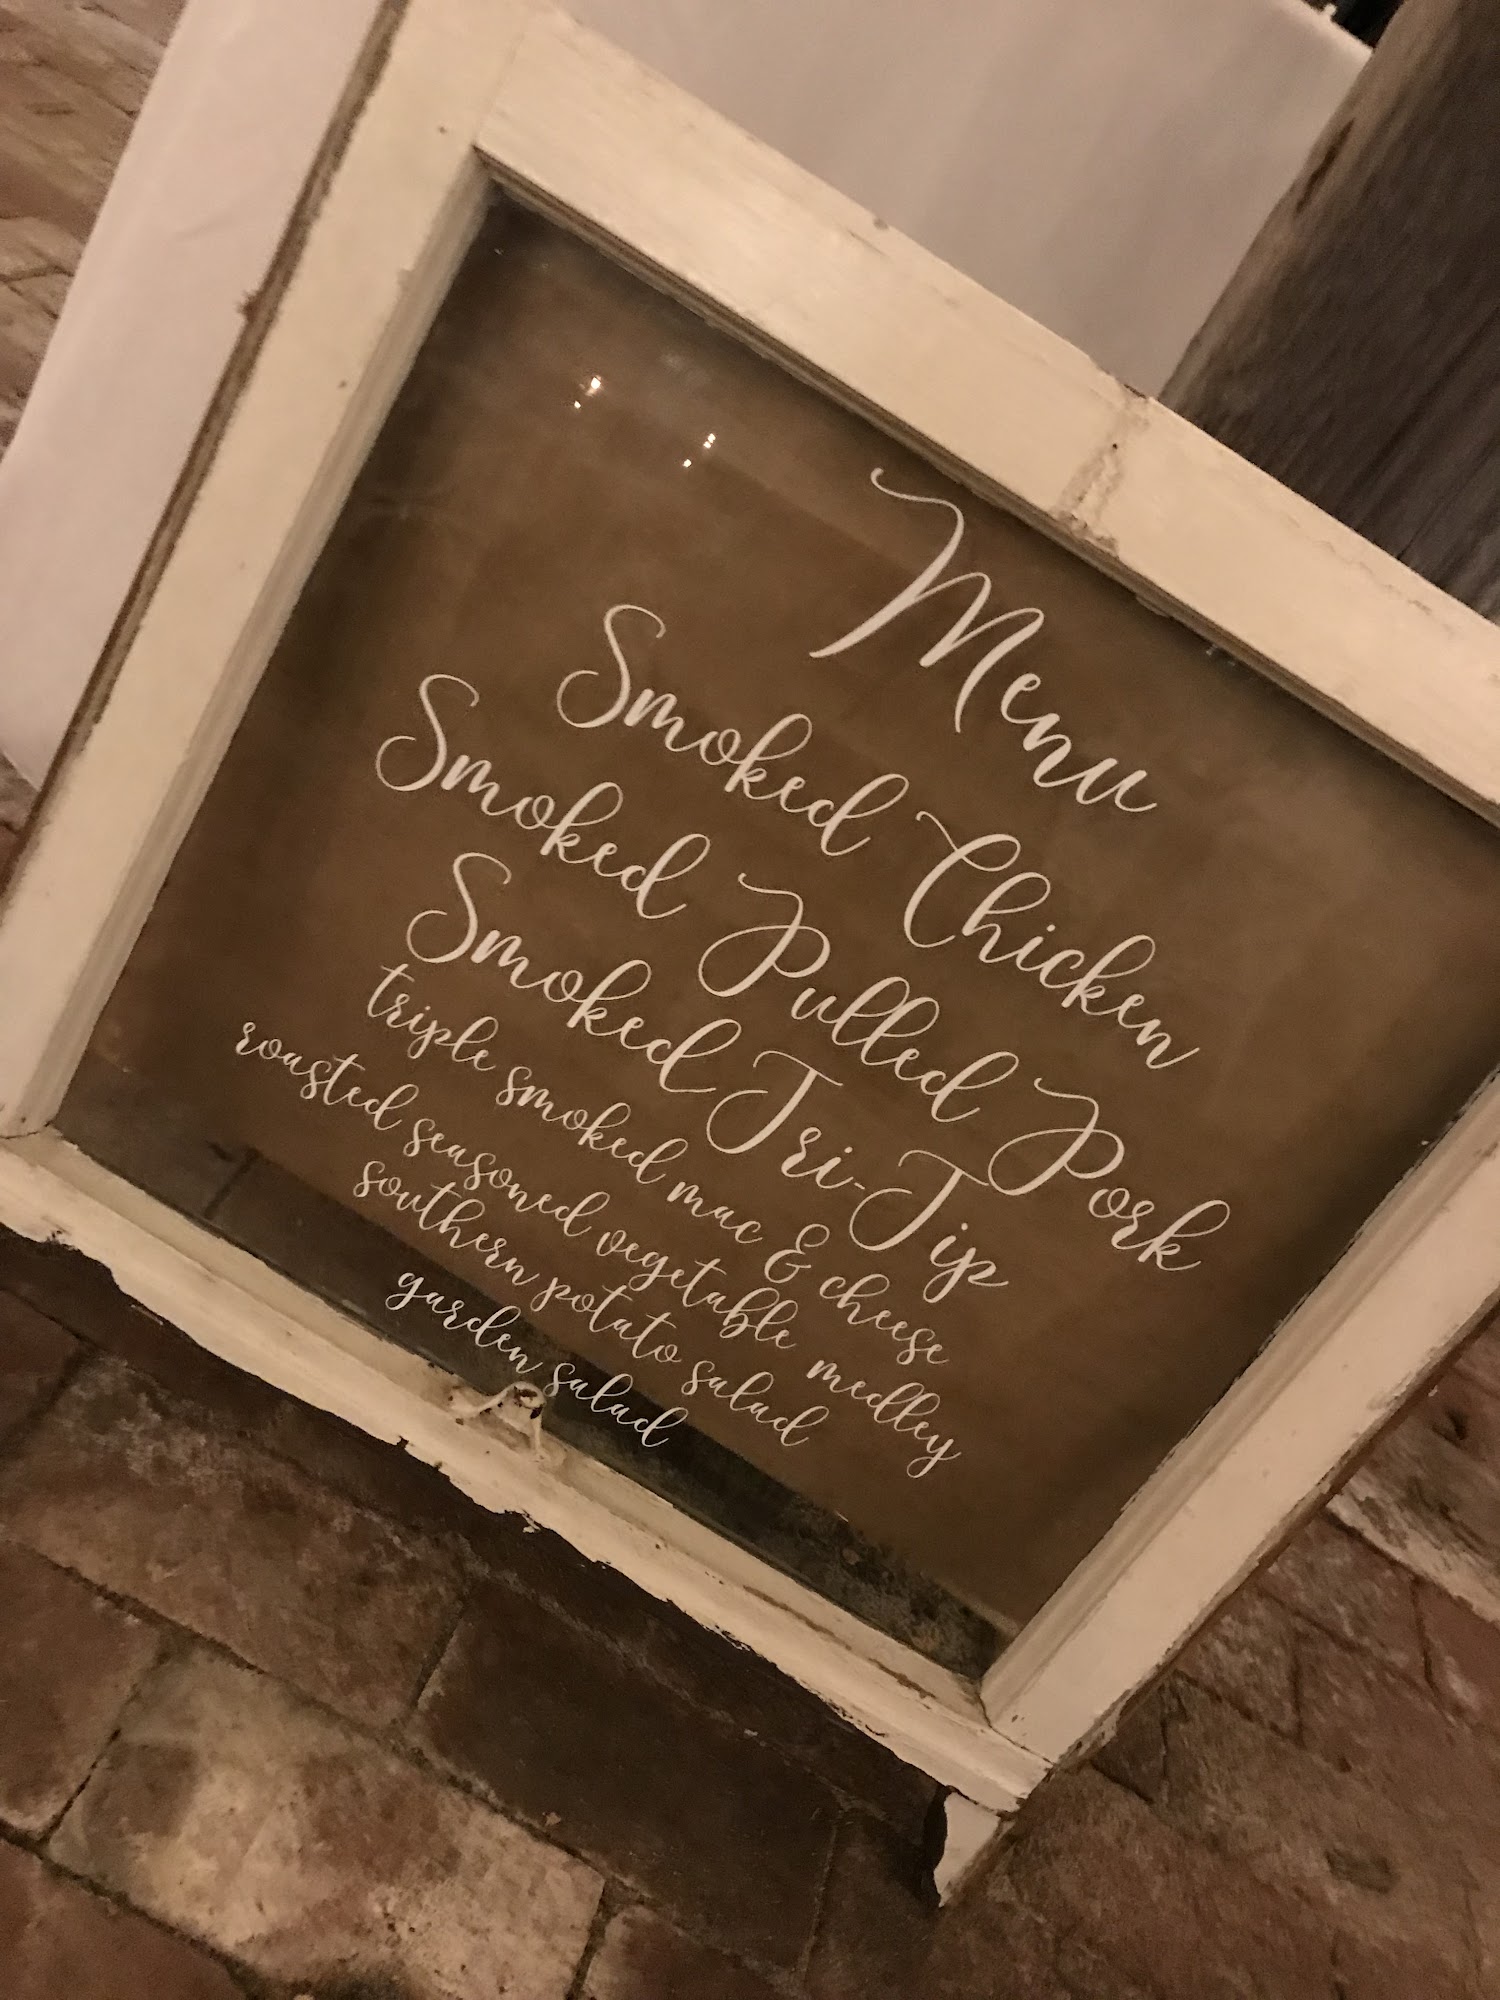 Menu
Smoked Chicken
Smoked Pulled Pork
Smoked Tri-Tip
triple smoked mac & cheese
roasted seasoned vegetable medley
southern potato salad
garden salad